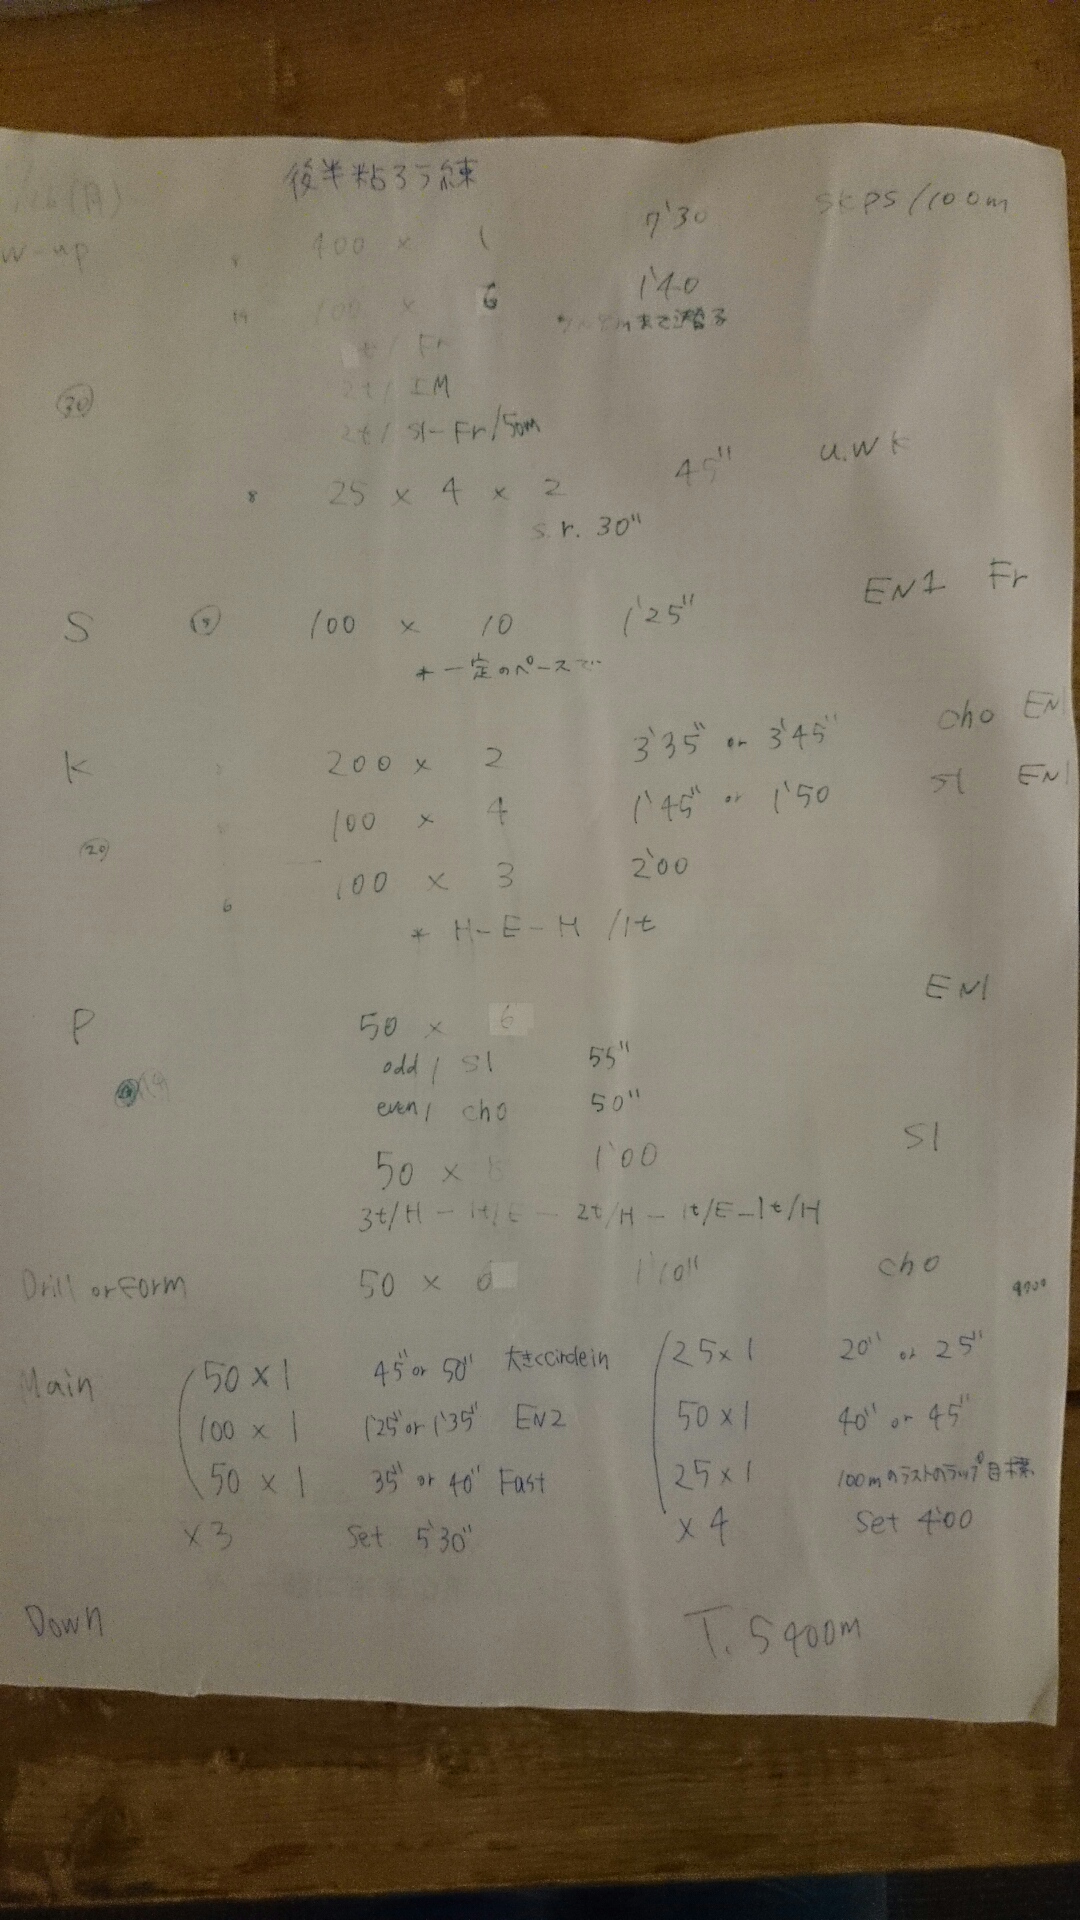 後半粘ろう練
(月)
W-up 400 × 1 7'30 SKPS/100m
100 × 6 1'40
まで潜る
t/ Fr
2t/ IM
30
2t/ S1-Fr/50m
8 25 × 4 × 2 45" u.w k
s.r. 30"
S 100 × 10 1'25" EN1 Fr
* 一定のペースで
K 200 × 2 3'35" or 3'45" cho EN1
100 × 4 1'45" or 1'50 S1 EN1
20
6 100 × 3 2'00
* H-E-H /1t
P 50 × 6 EN1
odd/ S1 55"
even/ cho 50"
50 × 8 1'00 S1
3t/H - 1t/E - 2t/H - 1t/E - 1t/H
Drill or Form 50 × 1'10" cho
Main
50×1 45" or 50" 大きくCircle in
100 × 1 1'25" or 1'35" EN2
50 × 1 35" or 40" Fast
×3 Set 5'30"
25×1 20" or 25"
50×1 40" or 45"
25×1 100mのラストのラップ目標
×4 Set 4'00
Down T. 5400m